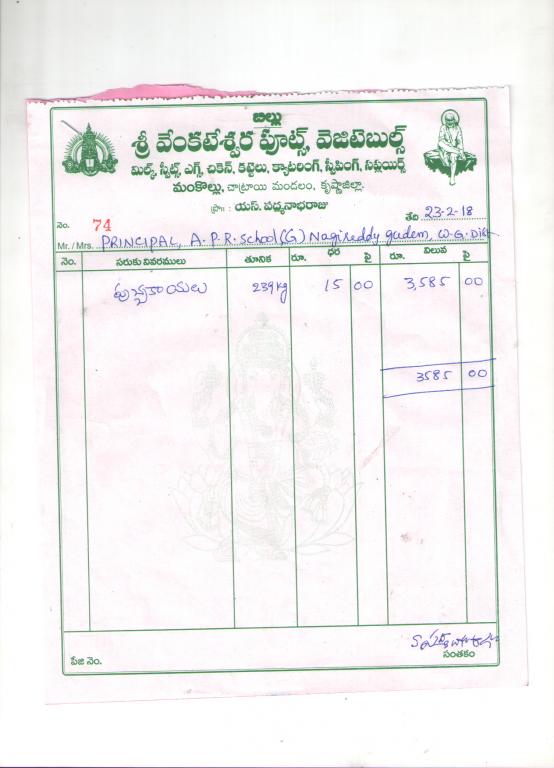 బిల్లు
శ్రీ వేంకటేశ్వర ఫ్రూట్స్, వెజిటెబుల్స్
మిల్క్, స్వీట్స్, ఎగ్స్, చికెన్, కట్టెలు, క్యాటరింగ్, స్వీపింగ్, సప్లయర్స్
మంకొల్లు, చాట్రాయి మండలం, కృష్ణాజిల్లా.
ప్రొ: : యస్. పద్మనాభరాజు
నెం. 74 తేది 23-2-18
Mr. / Mrs. PRINCIPAL, A.P.R. School(G) Nagireddy gudem, W.G. Dist
నెం. సరుకు వివరములు తూనిక రూ. ధర పై రూ. విలువ పై
పుచ్చకాయలు 239kg 15 00 3,585 00
3585 00
పేజి నెం. సంతకం